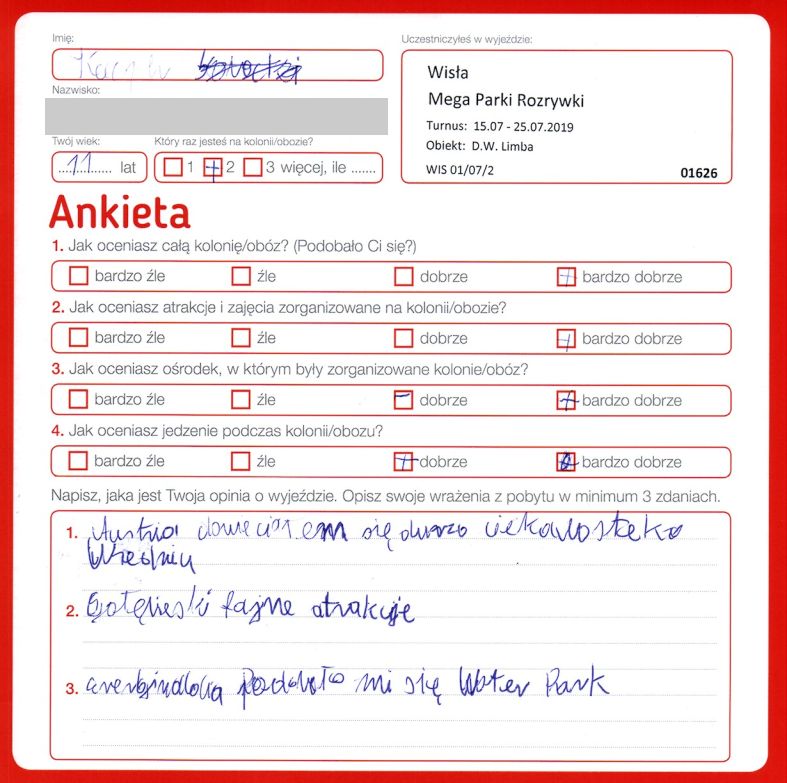 Imię:
Uczestniczyłeś w wyjeździe:
Kacper
Wisła
Mega Parki Rozrywki
Nazwisko:
Turnus: 15.07 - 25.07.2019
Obiekt: D.W. Limba
WIS 01/07/2 01626
Twój wiek: Który raz jesteś na kolonii/obozie?
11 lat 1 2 3 więcej, ile .......
Ankieta
1. Jak oceniasz całą kolonię/obóz? (Podobało Ci się?)
bardzo źle źle dobrze bardzo dobrze
2. Jak oceniasz atrakcje i zajęcia zorganizowane na kolonii/obozie?
bardzo źle źle dobrze bardzo dobrze
3. Jak oceniasz ośrodek, w którym były zorganizowane kolonie/obóz?
bardzo źle źle dobrze bardzo dobrze
4. Jak oceniasz jedzenie podczas kolonii/obozu?
bardzo źle źle dobrze bardzo dobrze
Napisz, jaka jest Twoja opinia o wyjeździe. Opisz swoje wrażenia z pobytu w minimum 3 zdaniach.
1. się
2. fajne atrakcje
3. mi się Water Park